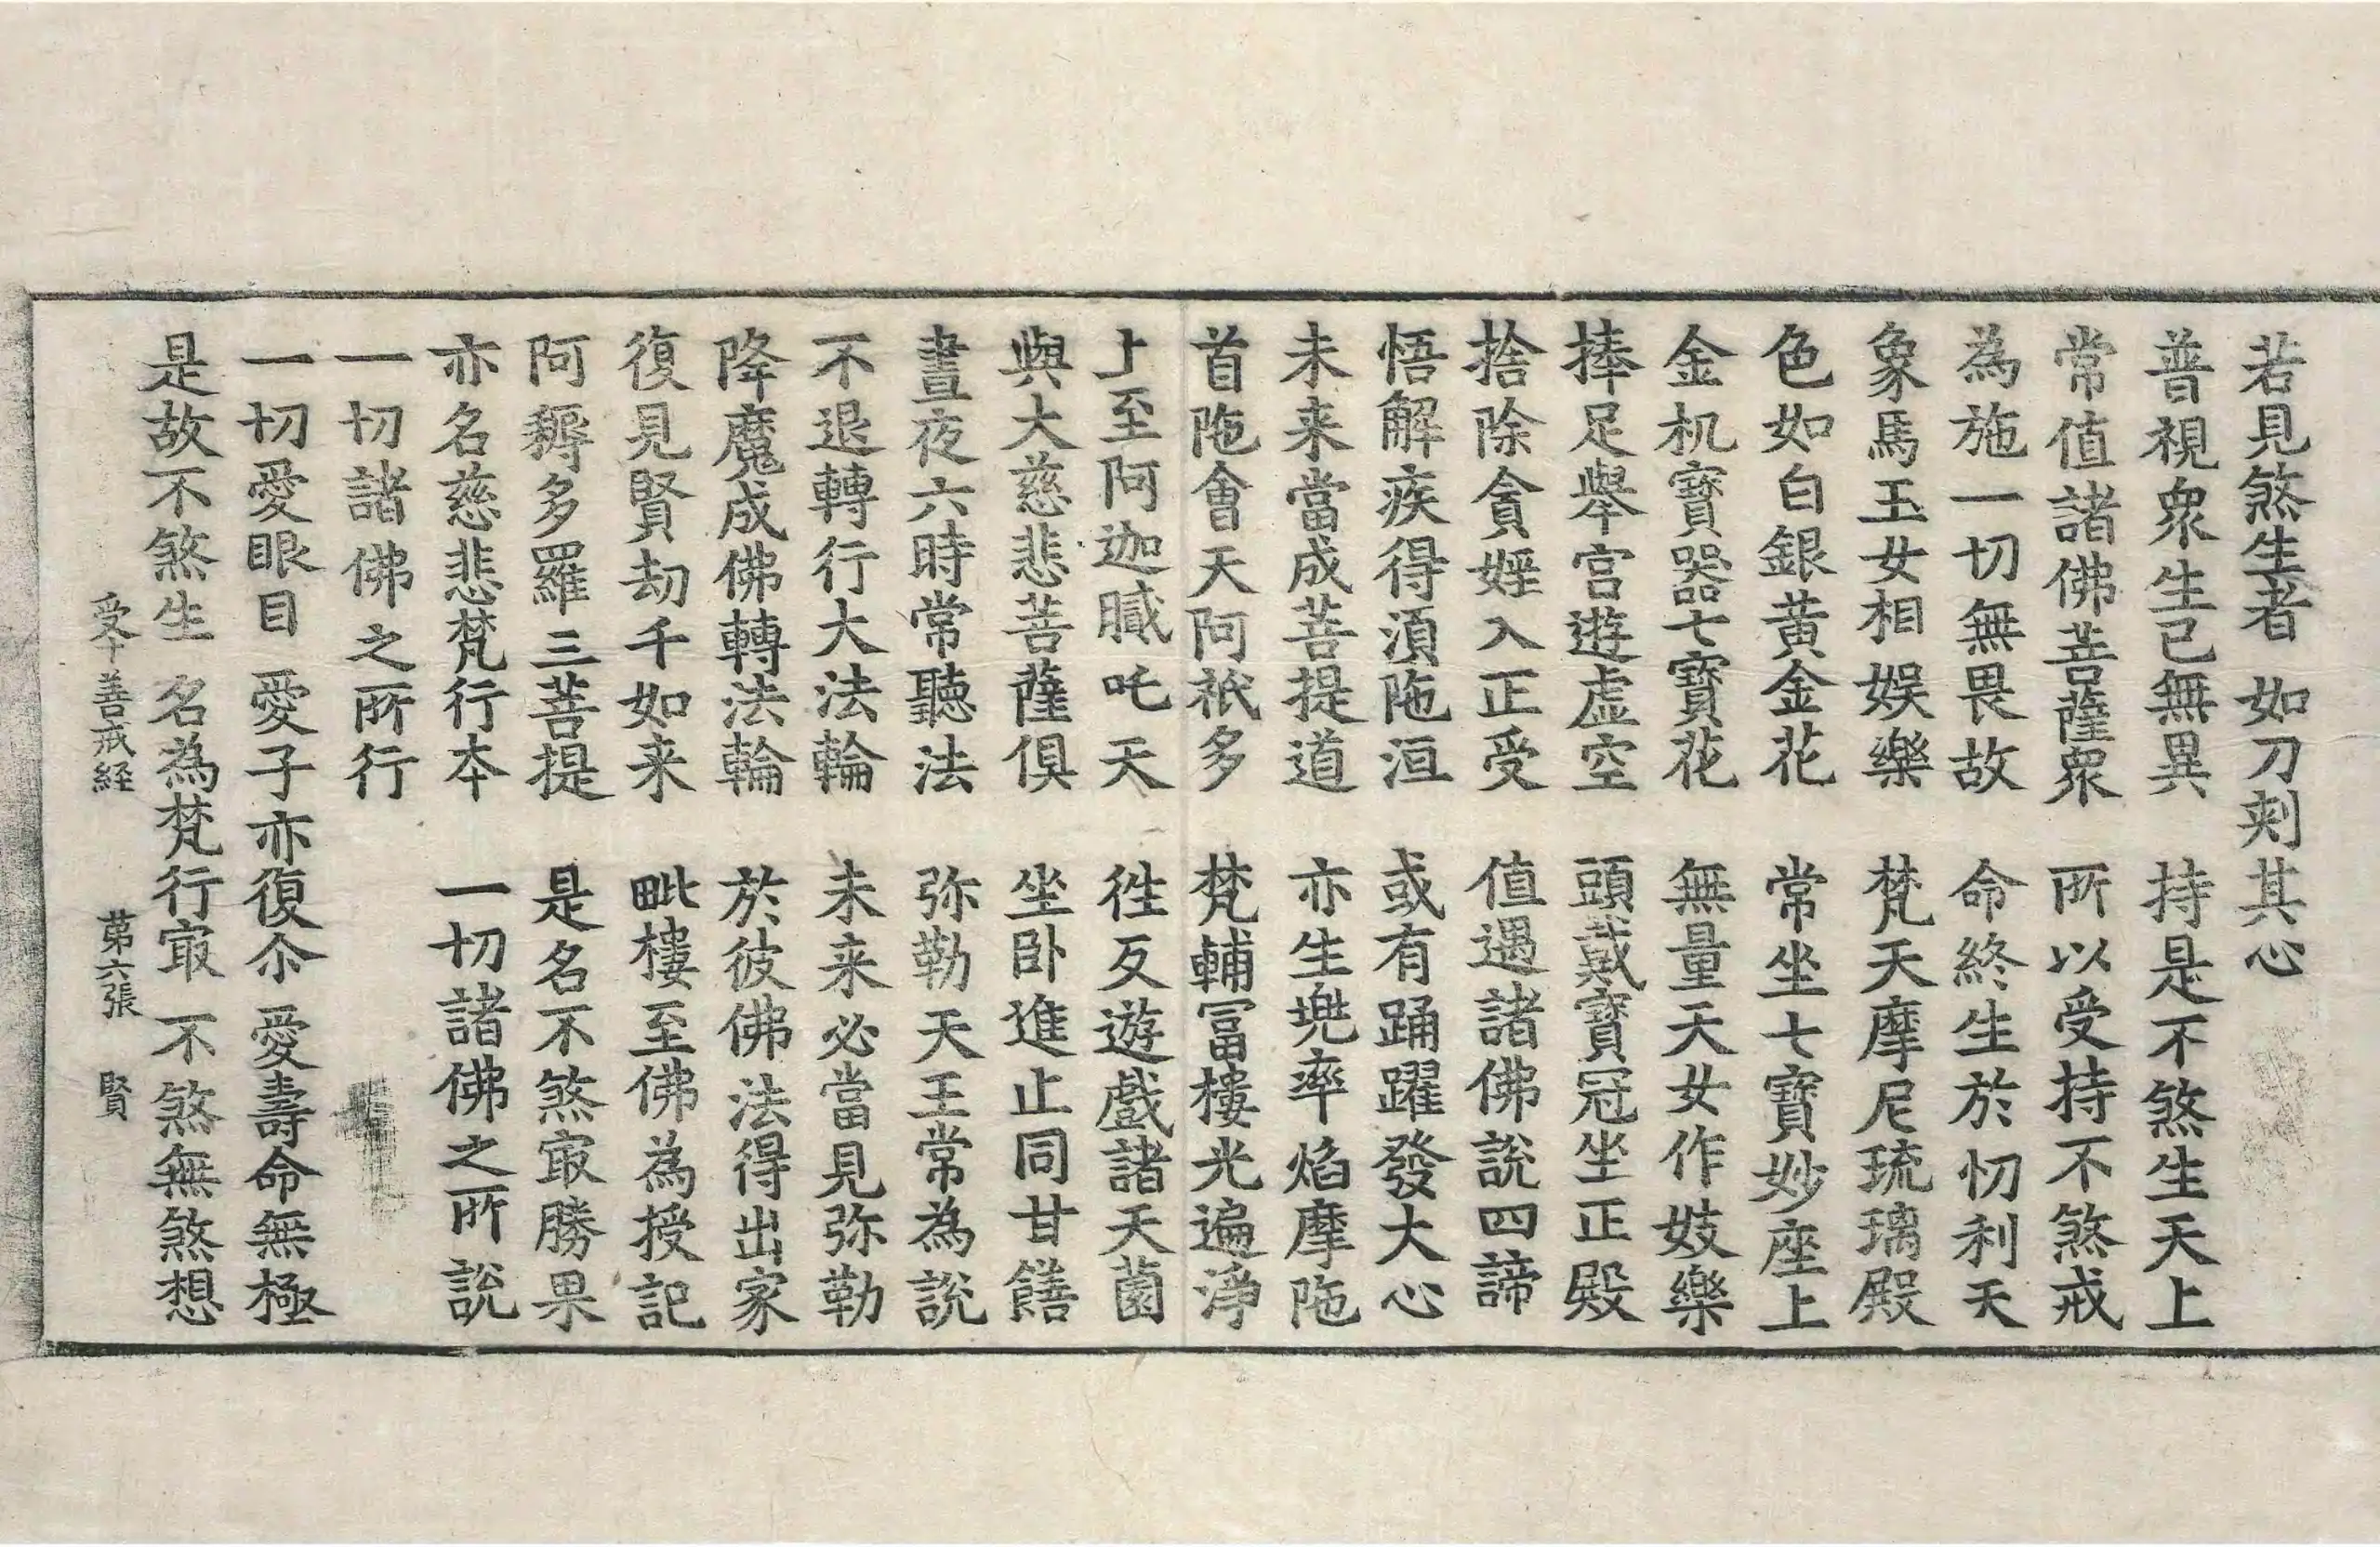 若見煞生者 如刀刺其心
普視衆生已無異 持是不煞生天上
常值諸佛菩薩衆 所以受持不煞戒
為施一切無畏故 命終生於忉利天
象馬玉女相娛樂 梵天摩尼琉璃殿
色如白銀黄金花 常坐七寶妙座上
金机寶器七寶花 無量天女作妓樂
捧足舉宮遊虛空 頭戴寶冠坐正殿
捨除貪婬入正受 值遇諸佛說四諦
悟解疾得湏陁洹 或有踊躍發大心
未来當成菩提道 亦生兠率焰摩陁
首陁會天阿祇多 梵輔冨樓光遍淨
上至阿迦膩吒天 徃反遊戲諸天薗
與大慈悲菩薩俱 坐卧進止同甘饍
晝夜六時常聽法 弥勒天王常為說
不退轉行大法輪 未来必當見弥勒
降魔成佛轉法輪 於彼佛法得出家
復見賢劫千如来 毗樓至佛為授記
阿耨多羅三菩提 是名不煞㝡勝果
亦名慈悲梵行本 一切諸佛之所說
一切諸佛之所行
一切愛眼目 愛子亦復尒 愛壽命無極
是故不煞生 名為梵行㝡 不煞無煞想
受十善戒経 苐六張 賢